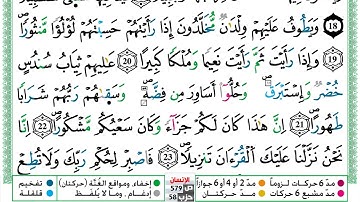 18 ۞ وَيَطُوفُ عَلَيْهِمْ وِلْدَٰنٌ مُّخَلَّدُونَ إِذَا رَأَيْتَهُمْ حَسِبْتَهُمْ لُؤْلُؤًا مَّنثُورًا
19 وَإِذَا رَأَيْتَ ثَمَّ رَأَيْتَ نَعِيمًا وَمُلْكًا كَبِيرًا 20 عَٰلِيَهُمْ ثِيَابُ سُندُسٍ
خُضْرٌ وَإِسْتَبْرَقٌ وَحُلُّوٓا۟ أَسَاوِرَ مِن فِضَّةٍ وَسَقَىٰهُمْ رَبُّهُمْ شَرَابًا
طَهُورًا 21 إِنَّ هَٰذَا كَانَ لَكُمْ جَزَآءً وَكَانَ سَعْيُكُم مَّشْكُورًا 22
إِنَّا نَحْنُ نَزَّلْنَا عَلَيْكَ ٱلْقُرْءَانَ تَنزِيلًا 23 فَٱصْبِرْ لِحُكْمِ رَبِّكَ وَلَا تُطِعْ
مدّ 6 حركات لزوماً مدّ 2 أو 4 أو 6 جوازاً الإنسان ص 579 إخفاء، ومواقع الغُنَّة (حركتان) تفخيم
مدّ مشبع 6 حركات مدّ حركتان حزب 58 إدغام، وما لا يُلفَظ قلقلة